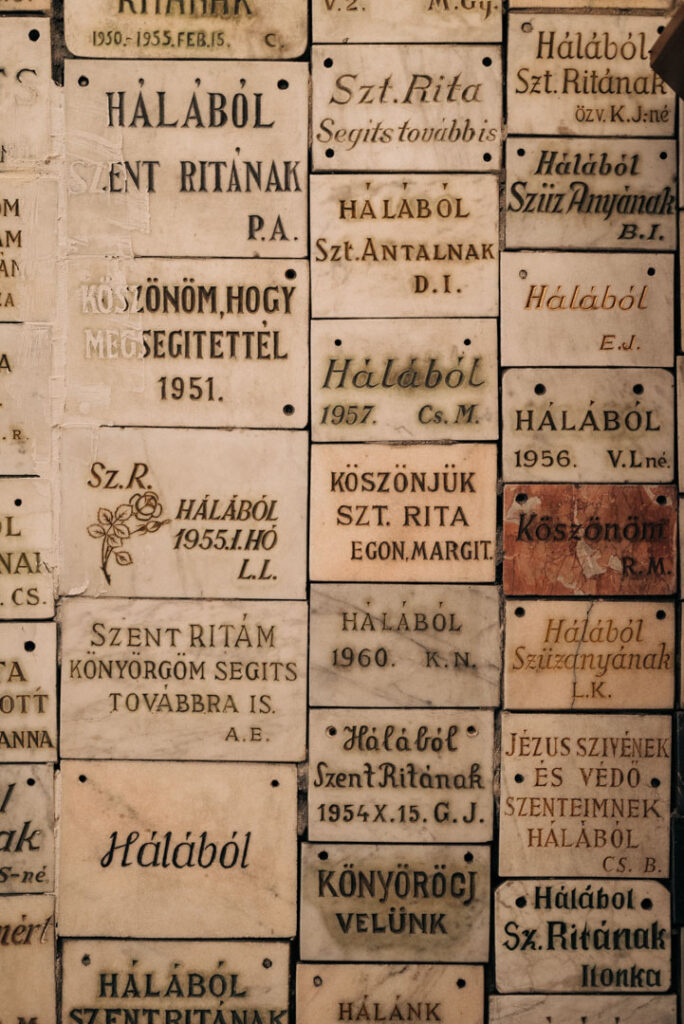 RITÁNAK
1950.-1955.FEB.15. C.
HÁLÁBÓL
SZENT RITÁNAK
P.A.
KÖSZÖNÖM,HOGY
MEGSEGITETTÉL
1951.
Sz.R.
HÁLÁBÓL
1955.I.HÓ
L.L.
SZENT RITÁM
KÖNYÖRGÖM SEGITS
TOVÁBBRA IS.
A.E.
Hálából
HÁLÁBÓL
SZENT RITÁNAK
V.2. M.Gy.
Szt.Rita
Segits továbbis
HÁLÁBÓL
Szt.ANTALNAK
D.I.
Hálából
1957. Cs.M.
KÖSZÖNJÜK
SZT. RITA
EGON,MARGIT.
HÁLÁBÓL
1960. K.N.
Hálából
Szent Ritának
1954 X.15. G.J.
KÖNYÖRÖGJ
VELÜNK
HÁLÁNK
Hálából
Szt.Ritának
özv.K.J.-né
Hálából
Szüz Anyának
B.I.
Hálából
E.J.
HÁLÁBÓL
1956. V.Lné.
Köszönöm
R.M.
Hálából
Szüzanyának
L.K.
JÉZUS SZIVÉNEK
ÉS VÉDŐ
SZENTEIMNEK
HÁLÁBÓL
CS. B.
Hálábol
Sz.Ritának
Ilonka